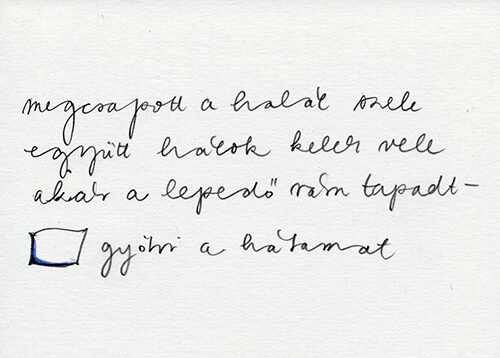 megcsapott a halál szele
együtt hálok kelek vele
akár a lepedő rám tapadt –
gyötri a hátamat